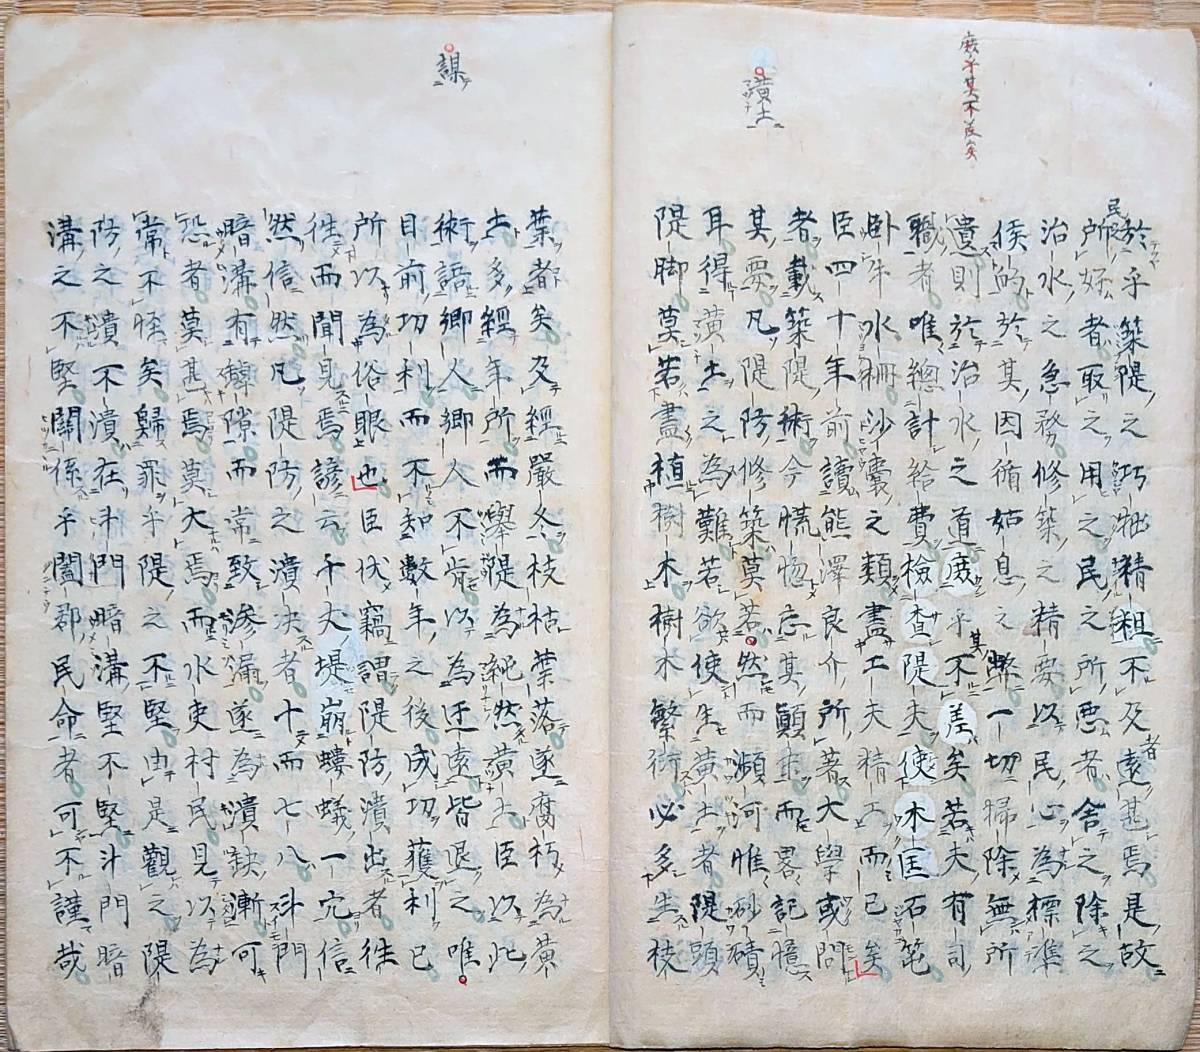 庶乎其不差矣
黄土
於乎築隄之巧拙精粗不及遠者甚焉是故
民所好者取之用之民之所悪者舎之除之
治水之急務修築之精要以民心為標準
侯的於其因循姑息之弊一切掃除無所
遺則於治水之道庶乎其不差矣若夫有司
職者唯總計給費檢查隄夫使木匡石笓
臥牛水柵沙嚢之類盡工夫精工而已矣
臣四十年前讀熊澤良介所著大學或問
者載築隄術今慌惚忘其顚末而畧記憶
其要凡隄防修築莫若然而瀕河惟砂磧
耳得黄土之為難若欲使生黄土者隄頭
隄脚莫若盡植樹木樹木繁衍必多生枝
謀
葉者矣及經嚴冬枝枯葉落遂腐朽為黄
土多經年所而擧隄為純然黄土臣以此
術語郷人郷人不肯以為迂遠皆退之唯
目前功利而不知數年之後成功獲利已
所以為俗眼也臣伏竊謂隄防潰出者徃
徃而聞見焉諺云千丈堤崩螻蟻一穴信
然信然凡隄防之潰决者十而七八斗門
暗溝有罅隙而常致滲漏遂為潰缺漸可
恐者莫甚焉莫大焉而水吏村民見以為
常不怪矣歸罪乎隄之不堅由是觀之隄
防之潰不潰在斗門暗溝堅不堅斗門暗
溝之不堅關係乎闔郡民命者可不謹哉